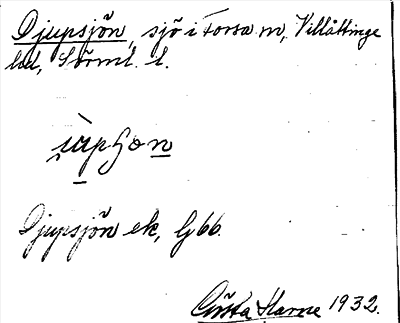 Djupsjön, sjö i Forsa sn, Villåttinge
hd, Sörml. l.
Djupsjön ek, G66.
Gösta Harne 1932.